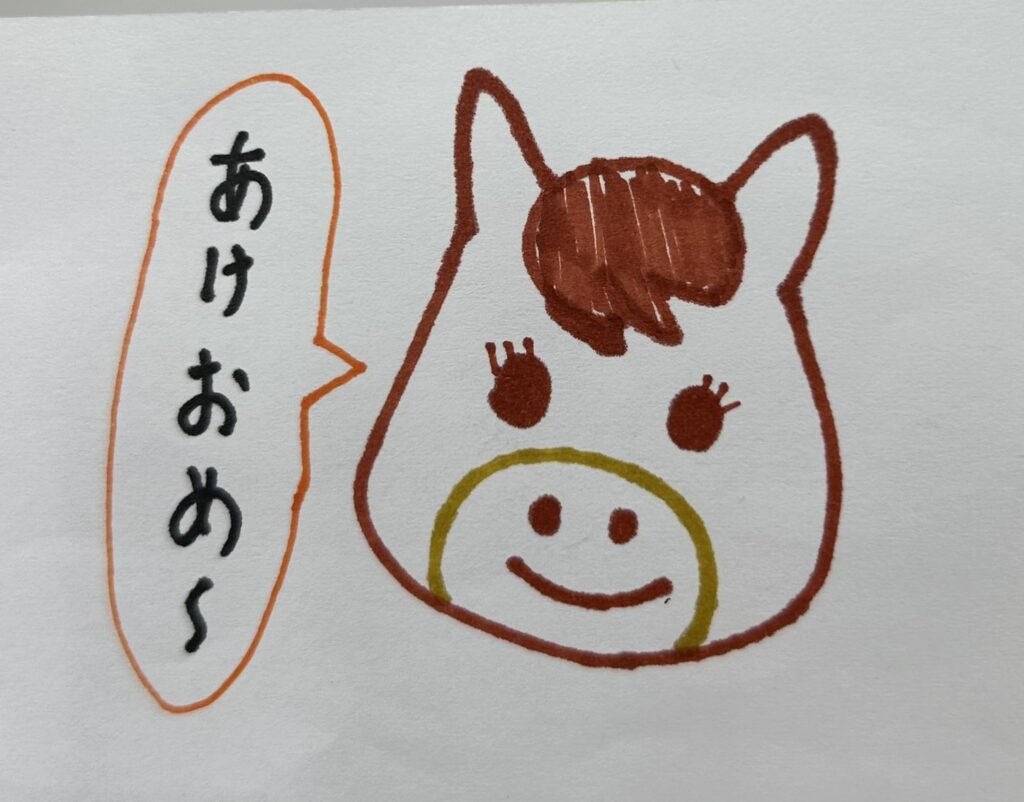 あけおめ〜